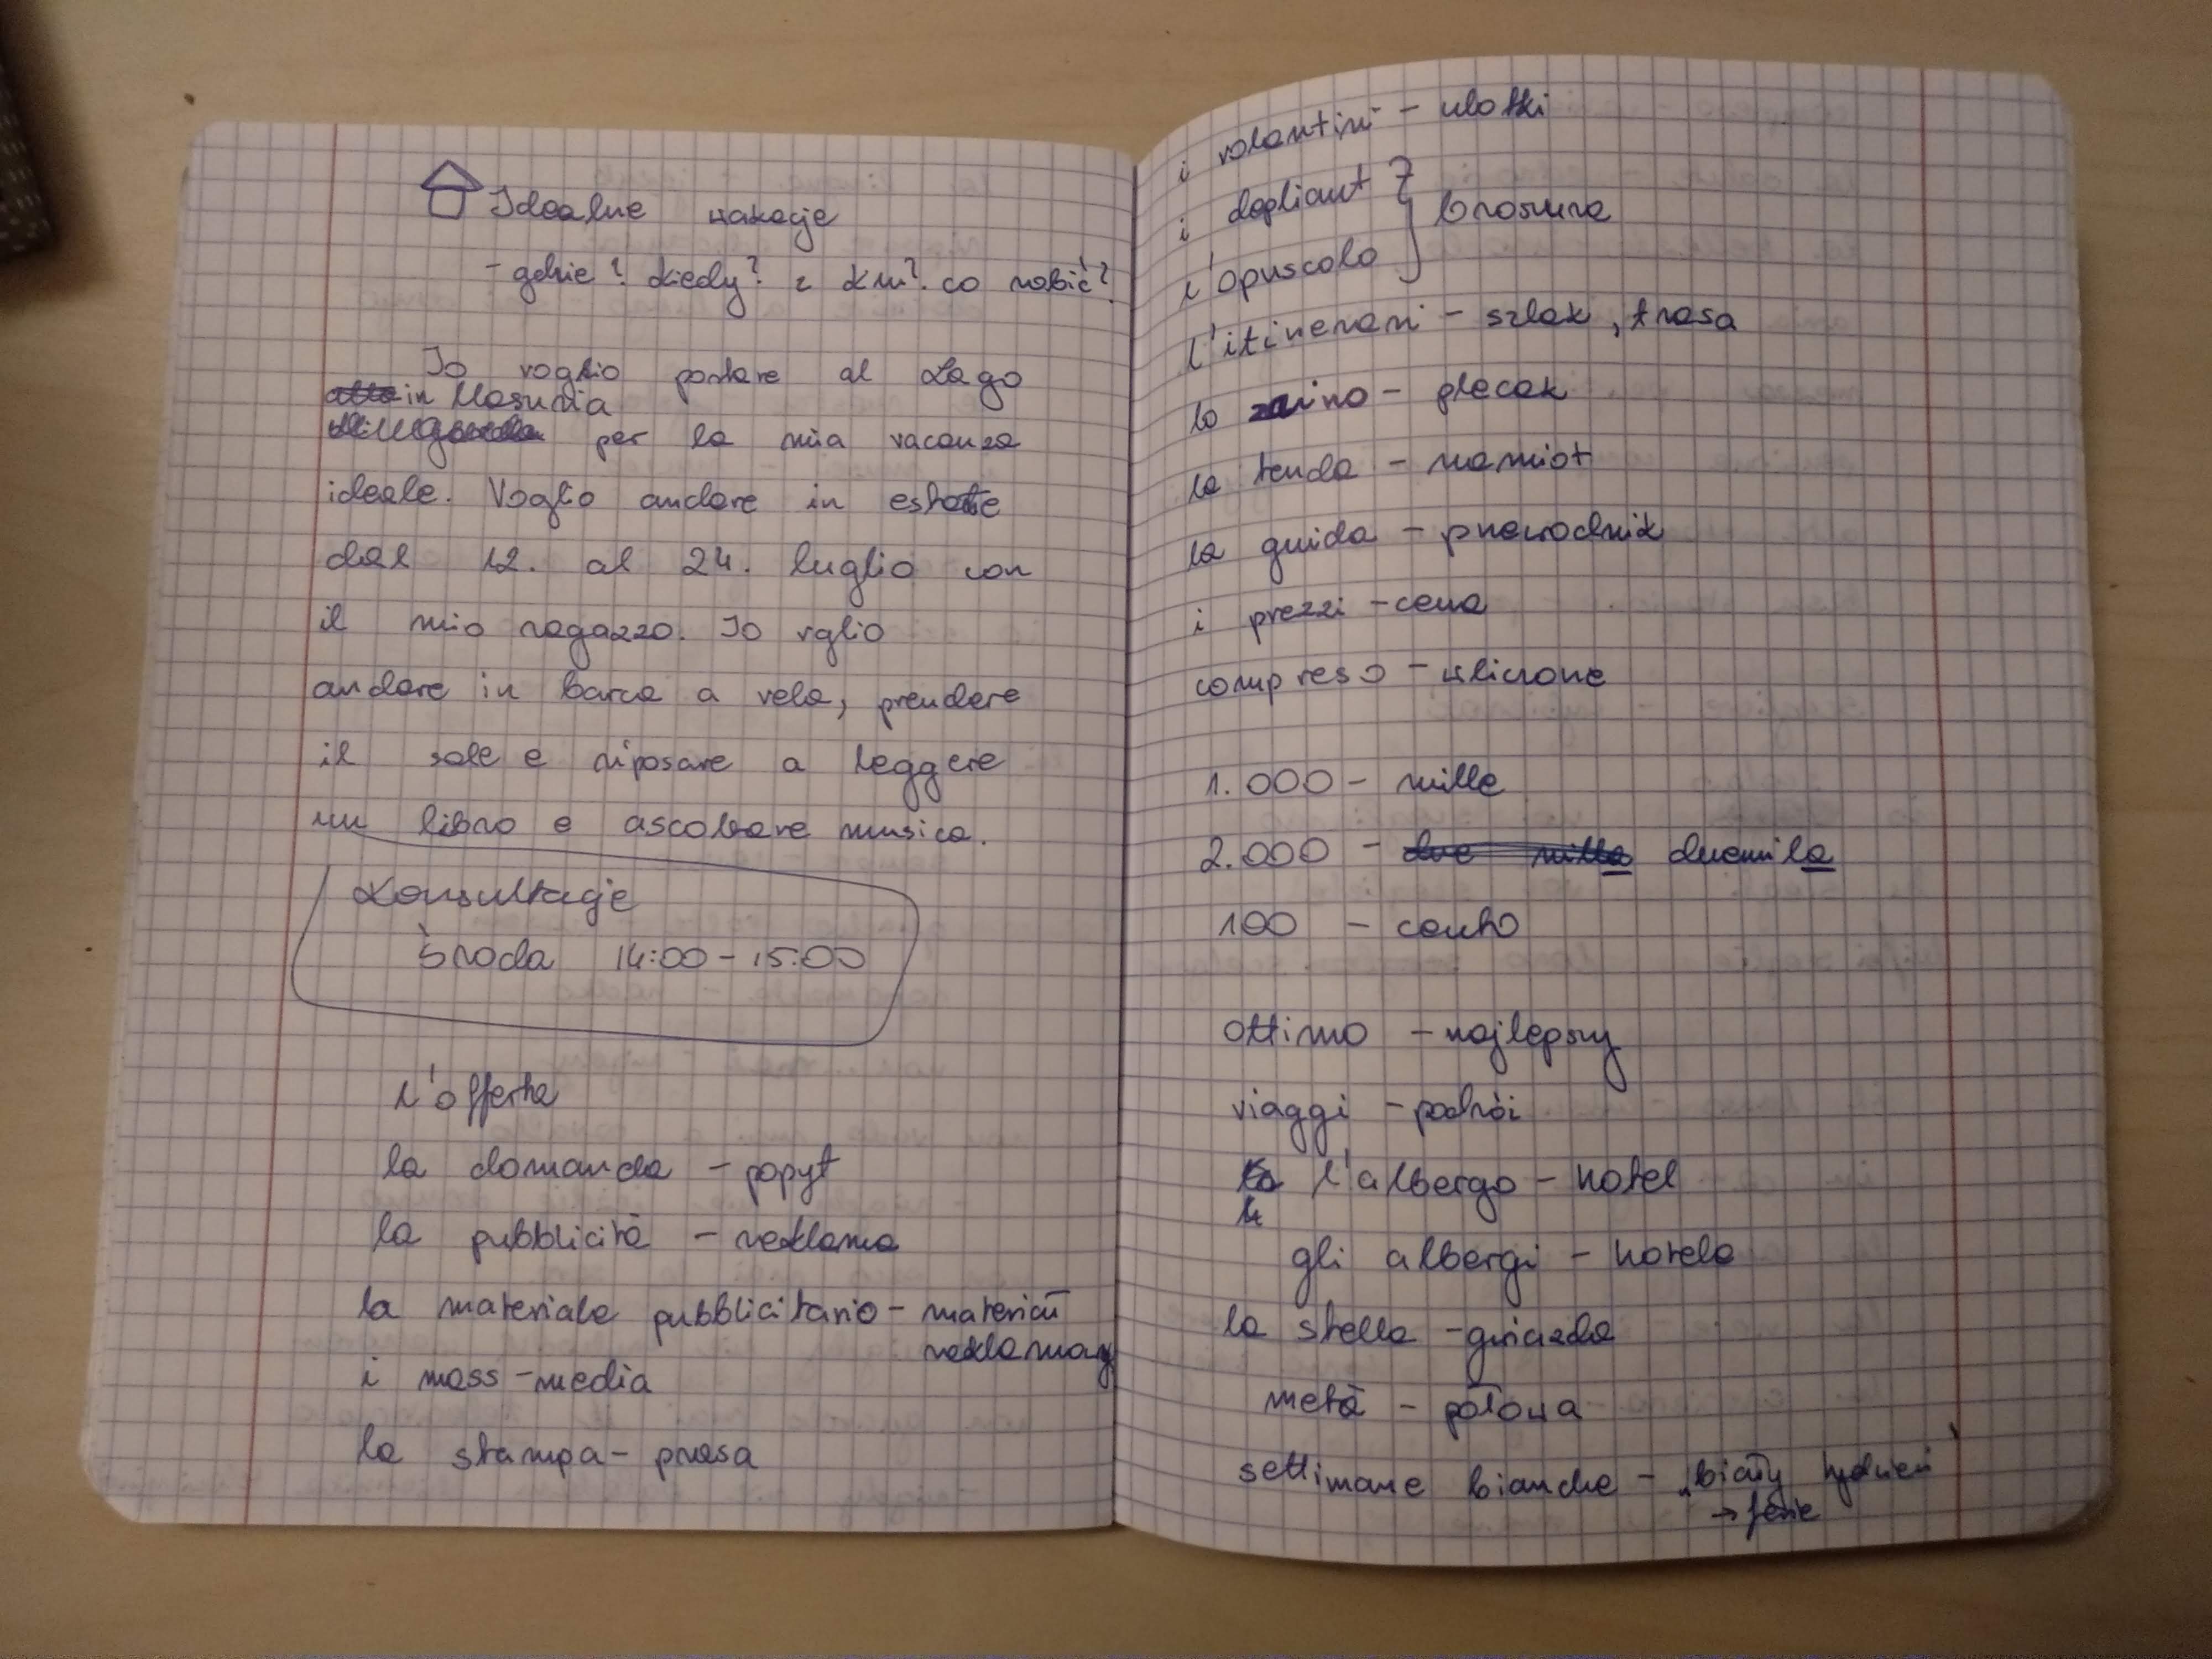 Idealne wakacje
- gdzie? kiedy? z kim? co robić?
Io voglio potare al lago
in Masuria
per la mia vacanza
ideale. Voglio andare in estate
dal 12. al 24. luglio con
il mio ragazzo. Io voglio
andare in barca a vela, prendere
il sole e riposare a leggere
un libro e ascoltare musica.
Konsultacje
środa 14:00 - 15:00
l'offerta
la domanda - popyt
la pubblicità - reklama
la materiale pubblicitario - materiał
reklamowy
i mass-media
la stampa - prasa
i volantini - ulotki
i depliant
l'opuscolo
broszura
l'itinerari - szlak, trasa
lo zaino - plecak
la tenda - namiot
la guida - przewodnik
i prezzi - cena
compreso - wliczone
1.000 - mille
2.000 - due mille duemila
100 - cento
ottimo - najlepszy
viaggi - podróż
l'albergo - hotel
gli albergi - hotele
la stella - gwiazda
metà - połowa
settimane bianche - "biały tydzień"
→ ferie